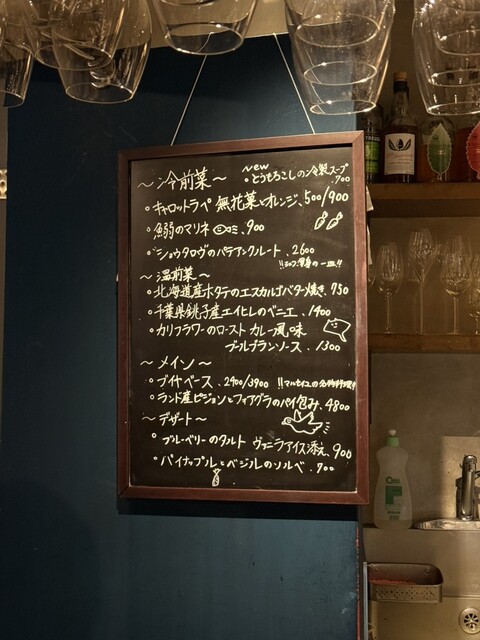 ～冷前菜～
New
・とうもろこしの冷製スープ
.900
・キャロットラペ 無花果とオレンジ.500/900
・鰯のマリネ .900
・ショウタロヴのパテアンクルート .2600
!!シェフ 一皿!!
～温前菜～
・北海道産ホタテのエスカルゴバター焼き.950
・千葉県銚子産エイヒレのベニエ.1400
・カリフラワーのロースト カレー風味
ブールブランソース .1300
～メイン～
・ブイヤベース .2900/3900 !!マルセイユの名物料理!!
・ランド産ピジョンとフォアグラのパイ包み.4800
～デザート～
・ブルーベリーのタルト ヴァニラアイス添え.900
・パイナップルとバジルのソルベ.700